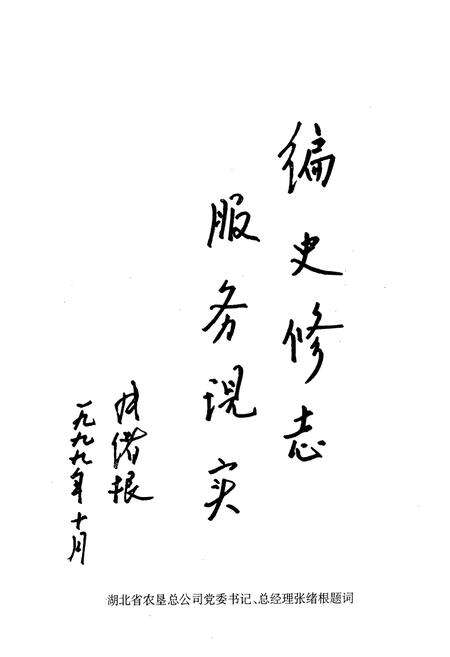 编史修志
服务现实
张绪根
一九九九年十月
湖北省农垦总公司党委书记、总经理张绪根题词